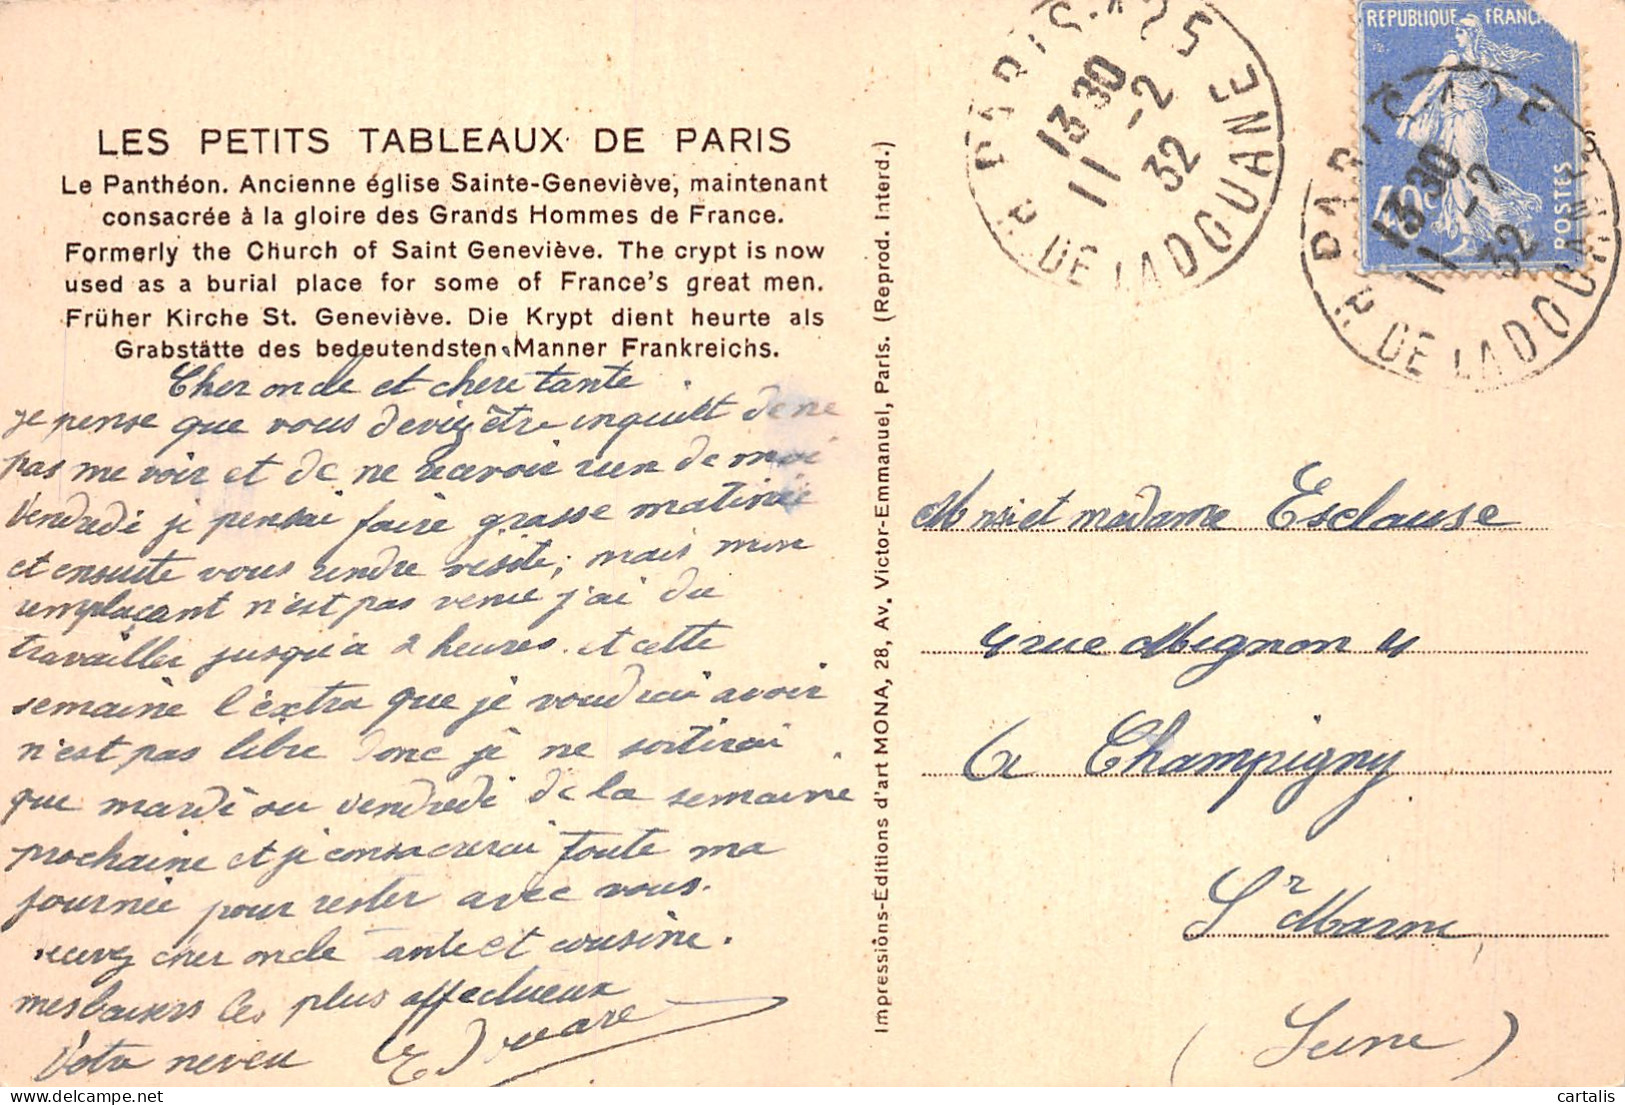 LES PETITS TABLEAUX DE PARIS
Le Panthéon. Ancienne église Sainte-Geneviève, maintenant
consacrée à la gloire des Grands Hommes de France.
Formerly the Church of Saint Geneviève. The crypt is now
used as a burial place for some of France's great men.
Früher Kirche St. Geneviève. Die Krypt dient heurte als
Grabstätte des bedeutendsten Manner Frankreichs.
Cher oncle et chere tante
je pense que vous deviez être inquiet de ne
pas me voir et de ne recevoir rien de moi
Vendredi je pensai faire grasse matinée
et ensuite vous rendre visite; mais mon
remplaçant n'est pas venu j'ai du
travailler jusqu'a 2 heures. et cette
semaine l'extra que je voudrai avoir
n'est pas libre donc je ne sortirai
que mardi ou vendredi de la semaine
prochaine et je consacrerai toute ma
journée pour rester avec vous.
recevez cher oncle tante et cousine.
mes baisers les plus affectueux
Votre neveu
Impressions-Éditions d'art MONA, 28, Av. Victor-Emmanuel, Paris. (Reprod. Interd.)
REPUBLIQUE FRANCA
POSTES
40c
PARIS-125
13 30
11 -2
32
R. DE LA DOUANE
PARIS
13 30
11 -2
32
R. DE LA DOUANE
Mr et madame Esclause
4 rue Mignon 4
a Champigny
Sr Marne
(Seine)
cartalis
delcampe.net